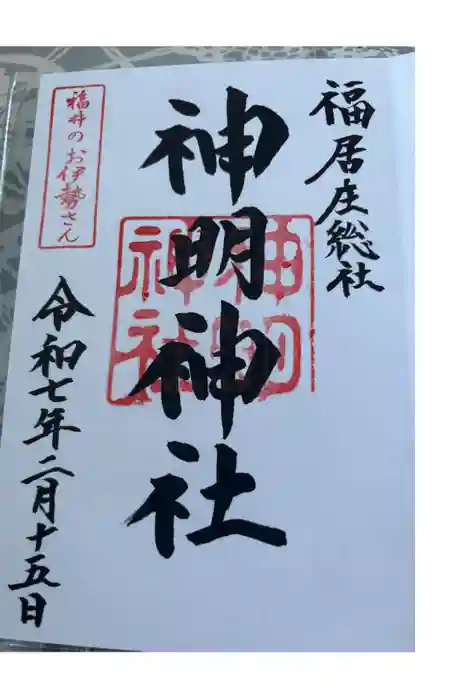 福居庄総社
神明神社
神明
神社
福井のお伊勢さん
令和七年二月十五日